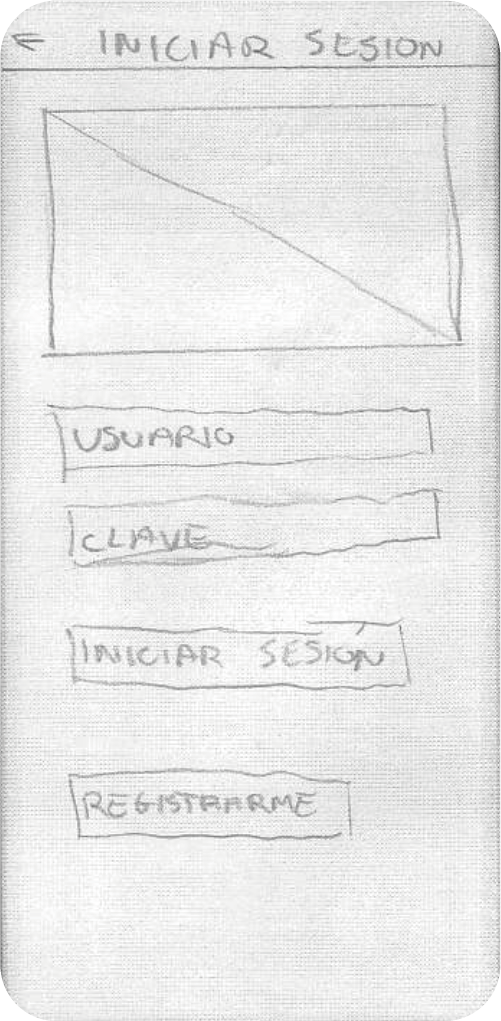 INICIAR SESION
USUARIO
CLAVE
INICIAR SESIÓN
REGISTRARME